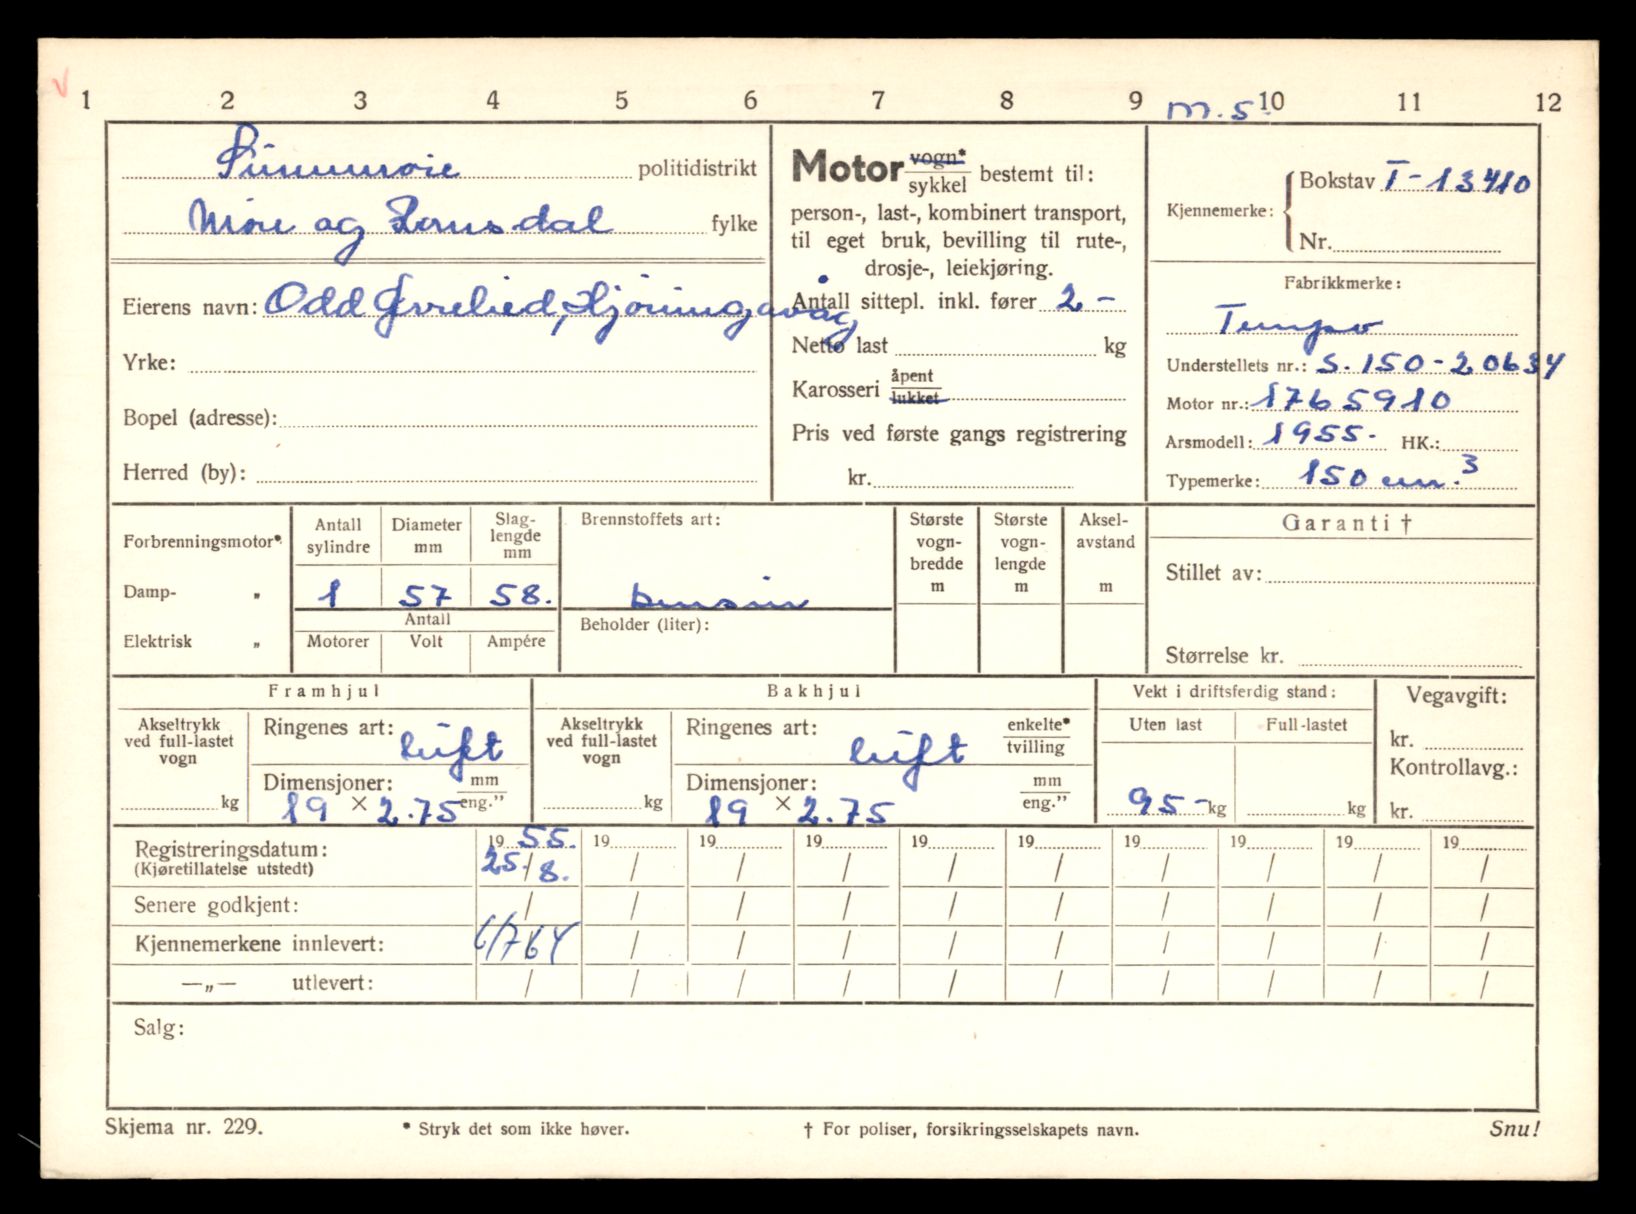 1 2 3 4 5 6 7 8 9 10 11 12
m.s.
Sunnmøre politidistrikt
Møre og Romsdal fylke
Eierens navn: Odd Øvrelied, Hjørungavåg
Yrke:
Bopel (adresse):
Herred (by):
Motor vogn* sykkel bestemt til:
person-, last-, kombinert transport,
til eget bruk, bevilling til rute-,
drosje-, leiekjøring.
Antall sittepl. inkl. fører 2 -
Netto last kg
Karosseri åpent lukket
Pris ved første gangs registrering
kr.
Kjennemerke: Bokstav T-13410
Nr.
Fabrikkmerke:
Tempo
Understellets nr.: S.150-20634
Motor nr.: 1765910
Arsmodell: 1955. HK.:
Typemerke: 150 cm.3
Forbrenningsmotor*
Damp- „
Elektrisk „
Antall sylindre
1
Diameter mm
57
Slag-
lengde
mm
58.
Antall
Motorer Volt Ampére
Brennstoffets art:
bensin
Beholder (liter):
Største
vogn-
bredde
m
Største
vogn-
lengde
m
Aksel-
avstand
m
Garanti †
Stillet av:
Størrelse kr.
Framhjul
Akseltrykk
ved full-lastet
vogn
kg
Ringenes art: luft
Dimensjoner: mm
19 × 2.75 eng."
Bakhjul
Akseltrykk
ved full-lastet
vogn
kg
Ringenes art: luft enkelte* tvilling
Dimensjoner: mm
19 × 2.75 eng."
Vekt i driftsferdig stand:
Uten last Full-lastet
95- kg kg
Vegavgift:
kr.
Kontrollavg.:
kr.
Registreringsdatum: 1955. 19 19 19 19 19 19 19 19 19
(Kjøretillatelse utstedt) 25./8. / / / / / / / / /
Senere godkjent: / / / / / / / / / /
Kjennemerkene innlevert: 6/7 64 / / / / / / / / /
—„— utlevert: / / / / / / / / / /
Salg:
Skjema nr. 229. * Stryk det som ikke høver. † For poliser, forsikringsselskapets navn. Snu!